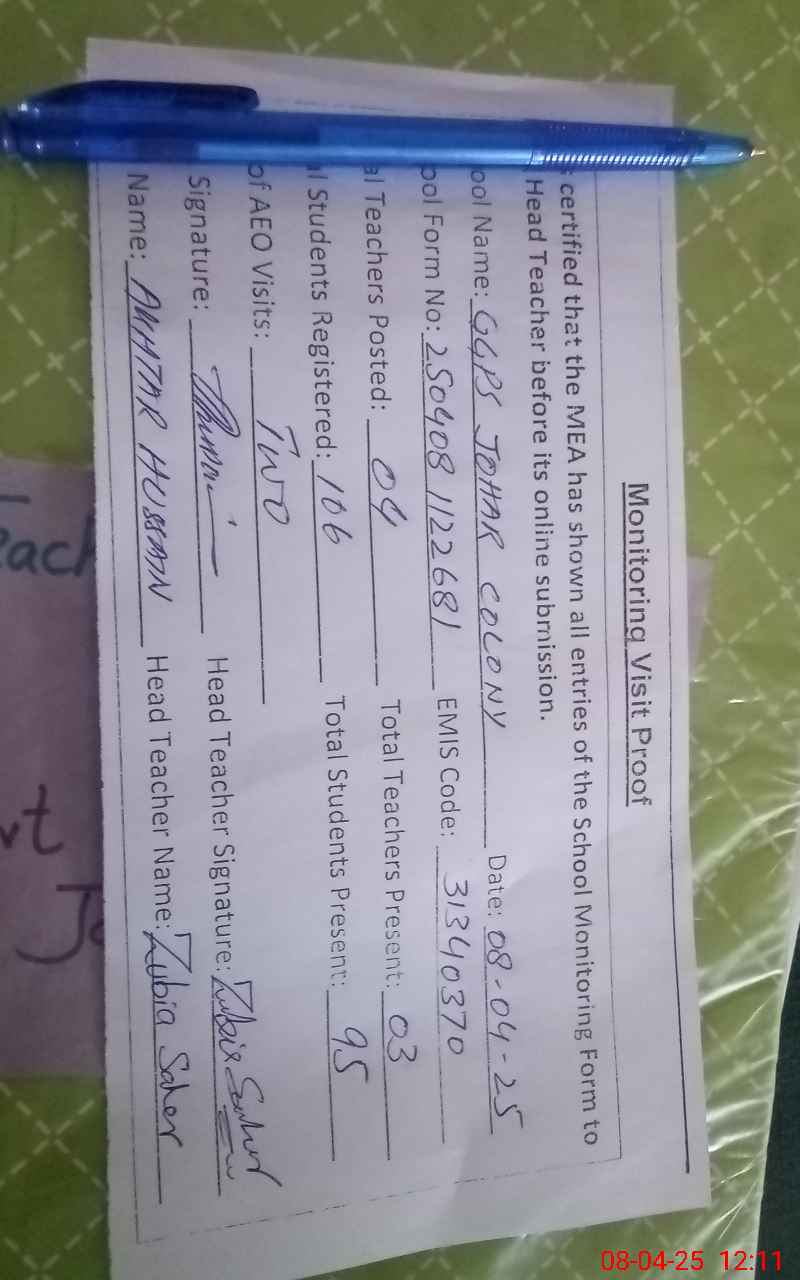 Monitoring Visit Proof
certified that the MEA has shown all entries of the School Monitoring Form to
Head Teacher before its online submission.
ool Name: GGPS JOHAR COLONY Date: 08-04-25
ool Form No: 250408112681 EMIS Code: 31340370
al Teachers Posted: 04 Total Teachers Present: 03
al Students Registered: 106 Total Students Present: 95
of AEO Visits: TWO
Signature: Head Teacher Signature: Zubia Saher
Name: AKHTAR HUSSAIN Head Teacher Name: Zubia Saher
each
t
Jo
08-04-25 12:11